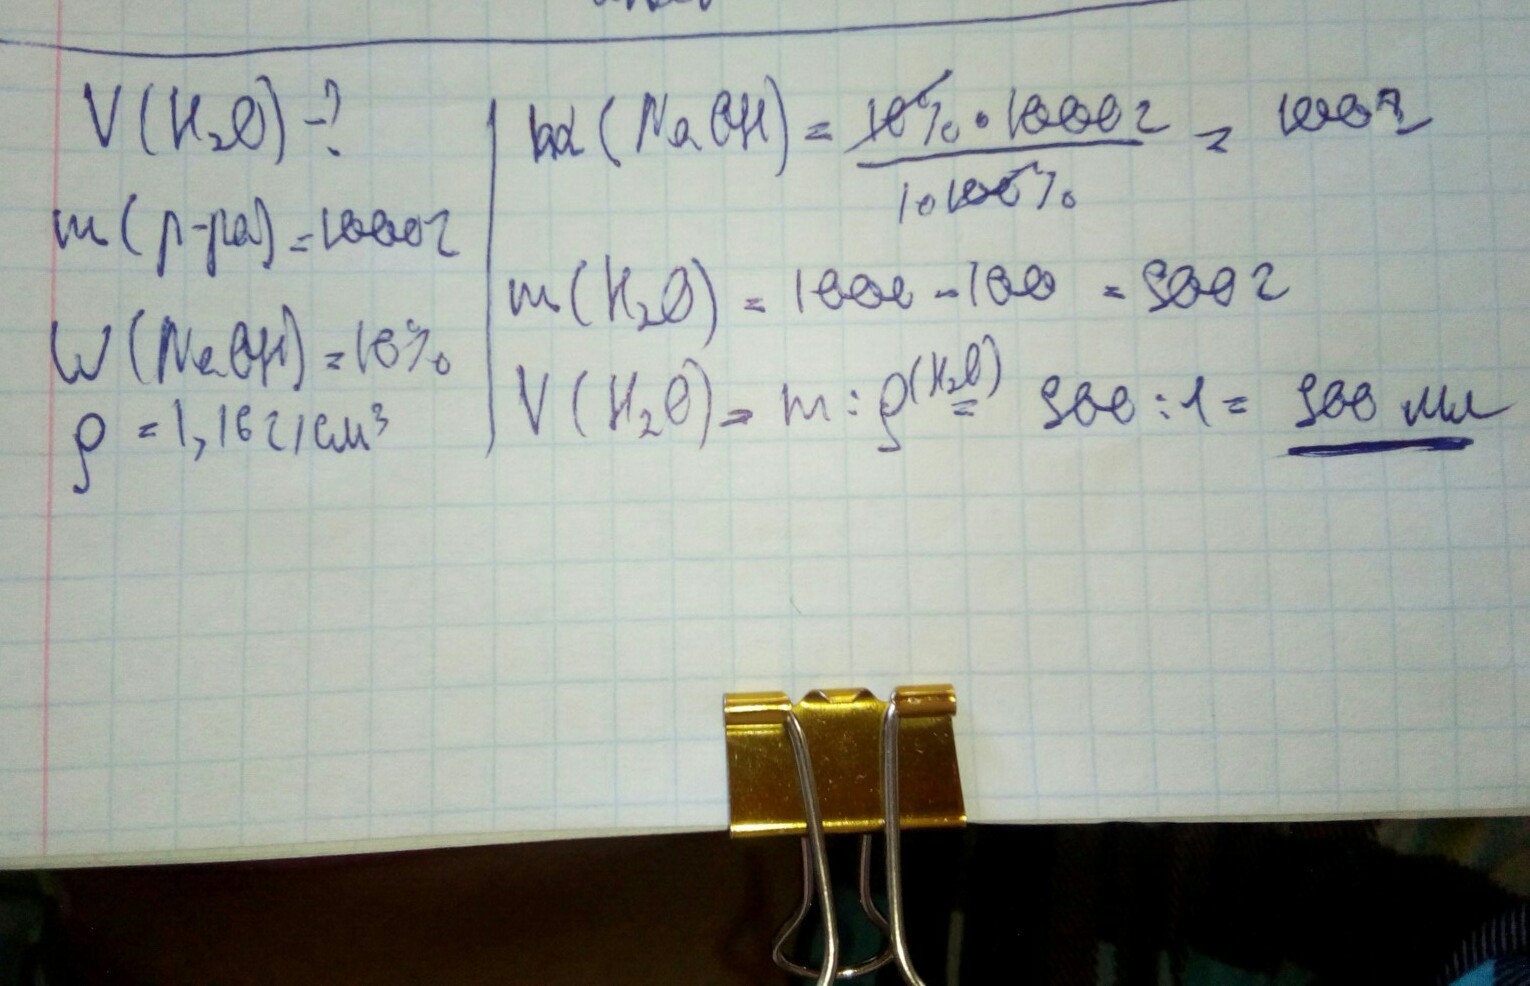 V(H₂O)-?
m(р-ра)=1000г
W(NaOH)=10%
ρ=1,16г/см³
m(NaOH)=10%·1000г/100%=100г
m(H₂O)=1000-100=900г
V(H₂O)=m:ρ(H₂O)=900:1=900мл